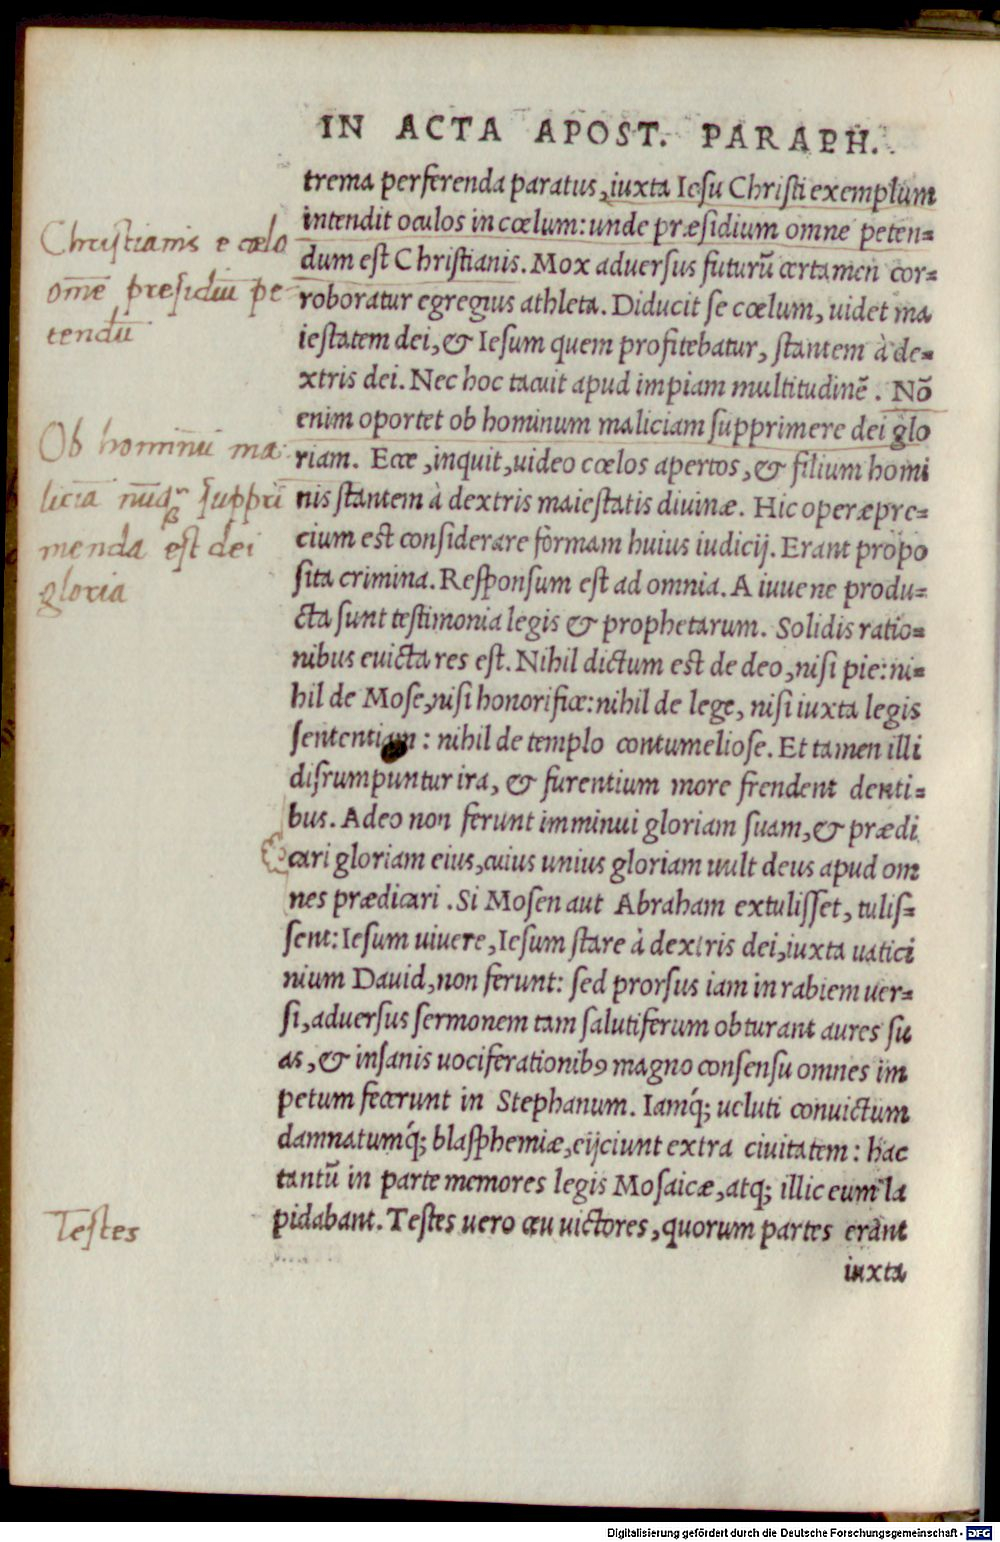 IN ACTA APOST. PARAPH.
trema perferenda paratus, iuxta Iesu Christi exemplum
intendit oculos in cœlum: unde præsidium omne peten=
dum est Christianis. Mox aduersus futurũ certamen cor=
roboratur egregius athleta. Diducit se cœlum, uidet ma
iestatem dei, & Iesum quem profitebatur, stantem à de=
xtris dei. Nec hoc tacuit apud impiam multitudinẽ. Nõ
enim oportet ob hominum maliciam supprimere dei glo
riam. Ecce, inquit, uideo cœlos apertos, & filium homi
nis stantem à dextris maiestatis diuinæ. Hic operæpre=
cium est considerare formam huius iudicij. Erant propo
sita crimina. Responsum est ad omnia. A iuuene produ=
cta sunt testimonia legis & prophetarum. Solidis ratio=
nibus euicta res est. Nihil dictum est de deo, nisi pie: ni=
hil de Mose, nisi honorifice: nihil de lege, nisi iuxta legis
sententiam: nihil de templo contumeliose. Et tamen illi
disrumpuntur ira, & furentium more frendent denti=
bus. Adeo non ferunt imminui gloriam suam, & prædi
cari gloriam eius, cuius unius gloriam uult deus apud om
nes prædicari. Si Mosen aut Abraham extulisset, tulis=
sent: Iesum uiuere, Iesum stare à dextris dei, iuxta uatici
nium Dauid, non ferunt: sed prorsus iam in rabiem uer=
si, aduersus sermonem tam salutiferum obturant aures su
as, & insanis uociferationibꝯ magno consensu omnes im
petum fecerunt in Stephanum. Iamq́; ueluti conuictum
damnatumq́; blasphemiæ, eijciunt extra ciuitatem: hac
tantũ in parte memores legis Mosaicæ, atq; illic eum la
pidabant. Testes uero ceu uictores, quorum partes erant
iuxta
Christianis e cœlo
om̅e presidiũ pe
tendũ
Ob hominũ ma
liciã suppri
menda est dei
gloria
Testes
Digitalisierung gefördert durch die Deutsche Forschungsgemeinschaft - DFG